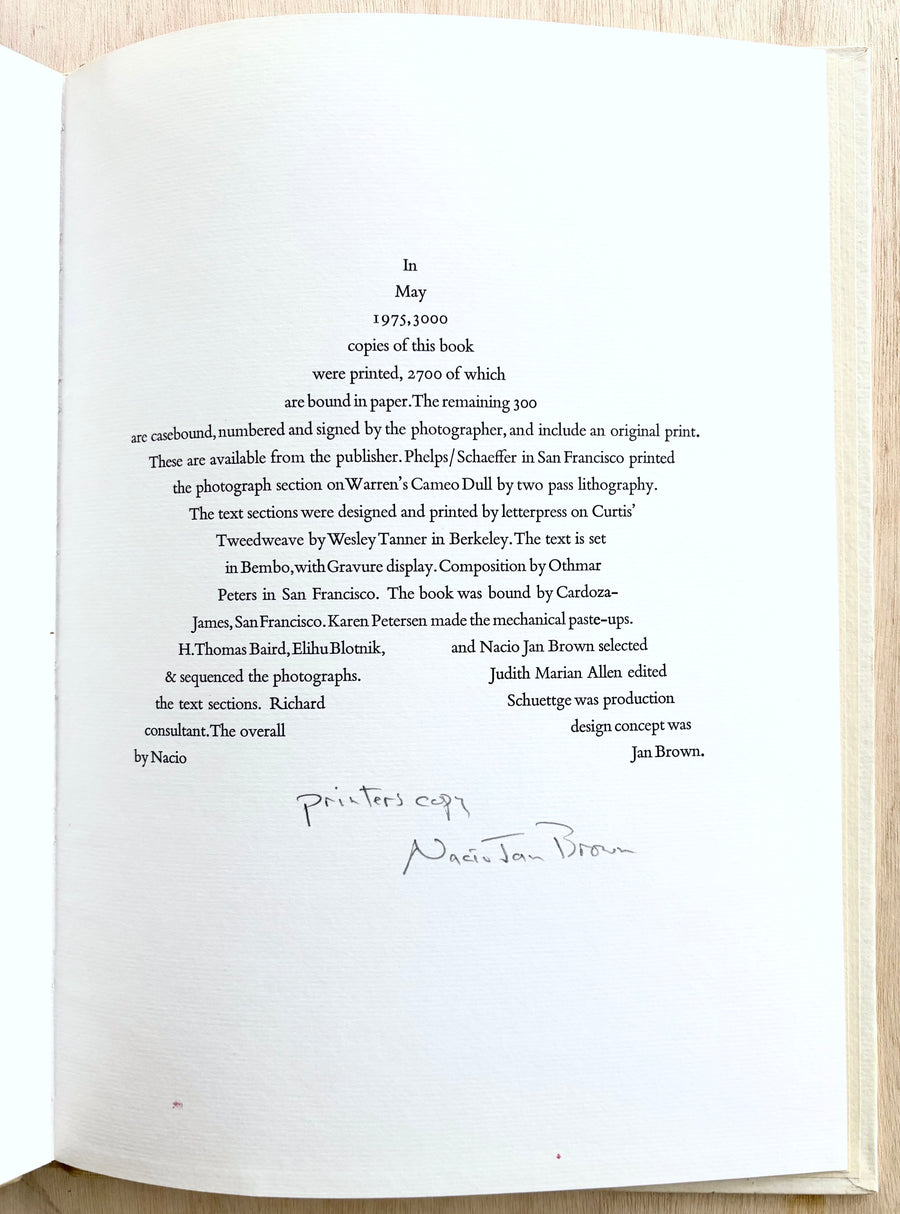 In
May
1975,3000
copies of this book
were printed, 2700 of which
are bound in paper. The remaining 300
are casebound, numbered and signed by the photographer, and include an original print.
These are available from the publisher. Phelps/Schaeffer in San Francisco printed
the photograph section on Warren's Cameo Dull by two pass lithography.
The text sections were designed and printed by letterpress on Curtis'
Tweedweave by Wesley Tanner in Berkeley. The text is set
in Bembo, with Gravure display. Composition by Othmar
Peters in San Francisco. The book was bound by Cardoza-
James, San Francisco. Karen Petersen made the mechanical paste-ups.
H. Thomas Baird, Elihu Blotnik, and Nacio Jan Brown selected
& sequenced the photographs. Judith Marian Allen edited
the text sections. Richard Schuettge was production
consultant. The overall design concept was
by Nacio Jan Brown.
printers copy
Nacio Jan Brown